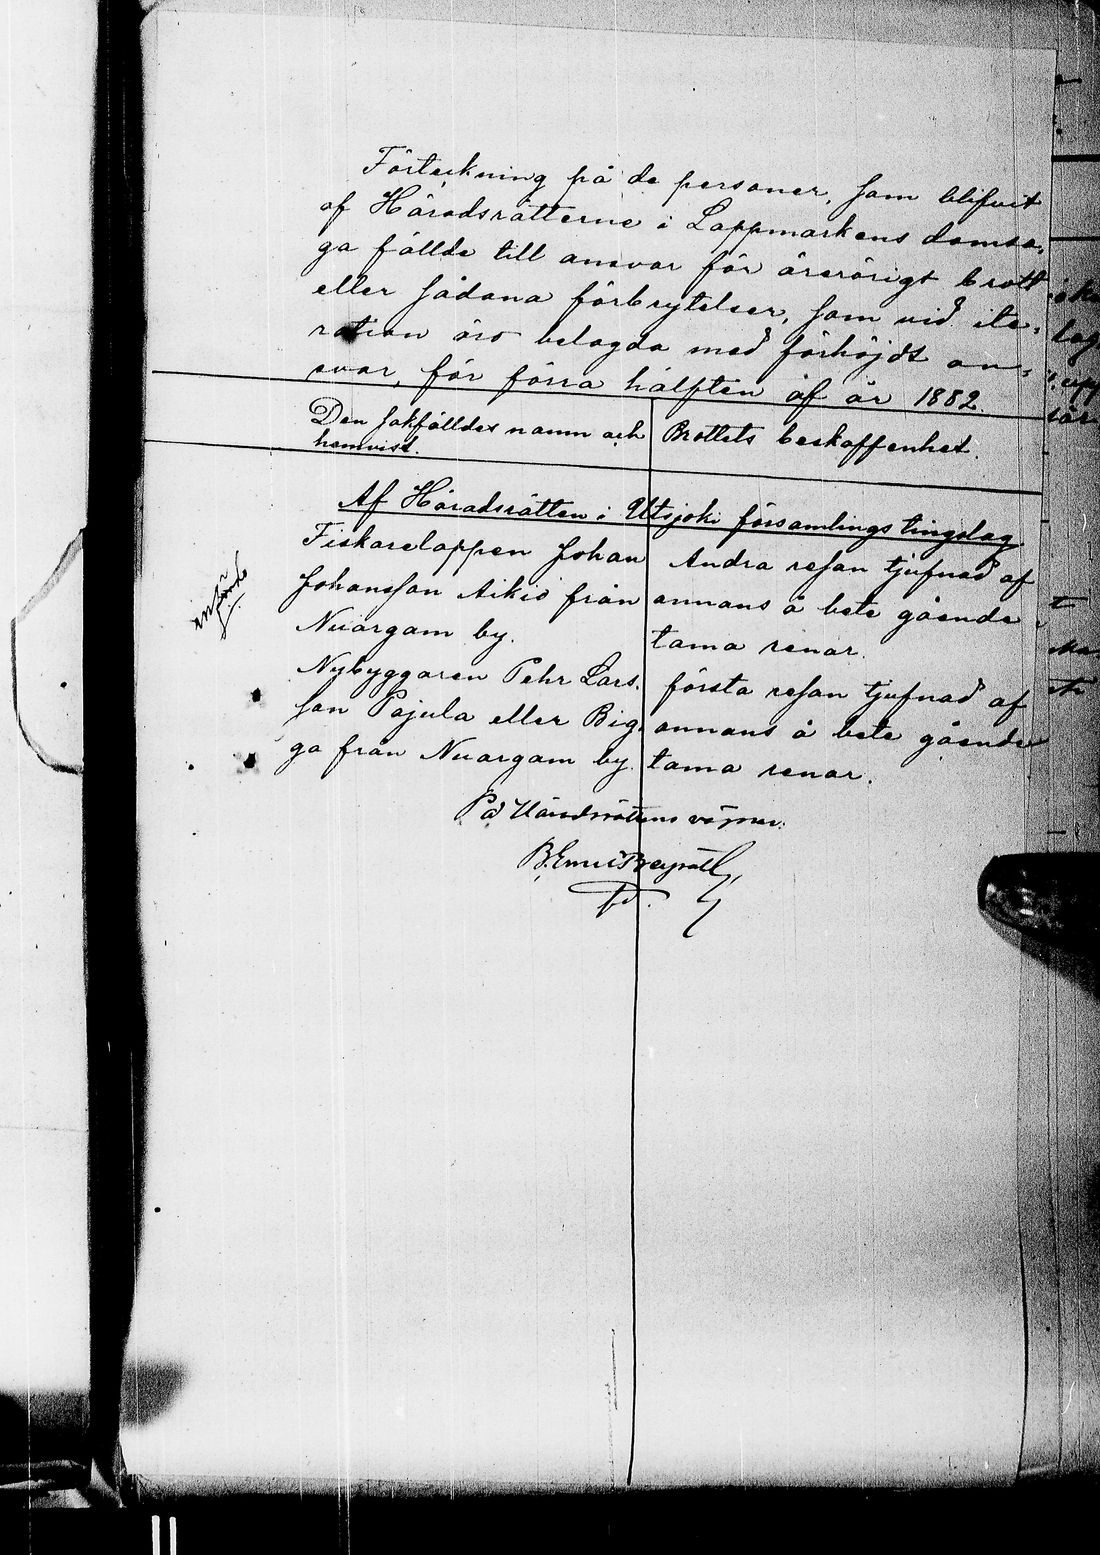 Förteckning på de personer, som blifvit
af Häradsrätterne i Lappmarkens domsa-
ga fällde till ansvar för ärerörigt brott
eller sådana förbrytelser, som vid ite-
ration äro belagda med förhöjdt an-
svar, för förra hälften af år 1882.
Den sakfälldes namn och
hemvist.
Brottets beskaffenhet.
Af Häradsrätten i Utsjoki församlings tingslag
Fiskarelappen Johan
Johansson Aikio från
Nuorgam by.
Andra resan tjufnad af
annans å bete gående
tama renar.
Nybyggaren Pehr Lars-
son Pajula eller Big-
ga från Nuorgam by.
första resan tjufnad af
annans å bete gående
tama renar.
På Häradsrättens vägnar: